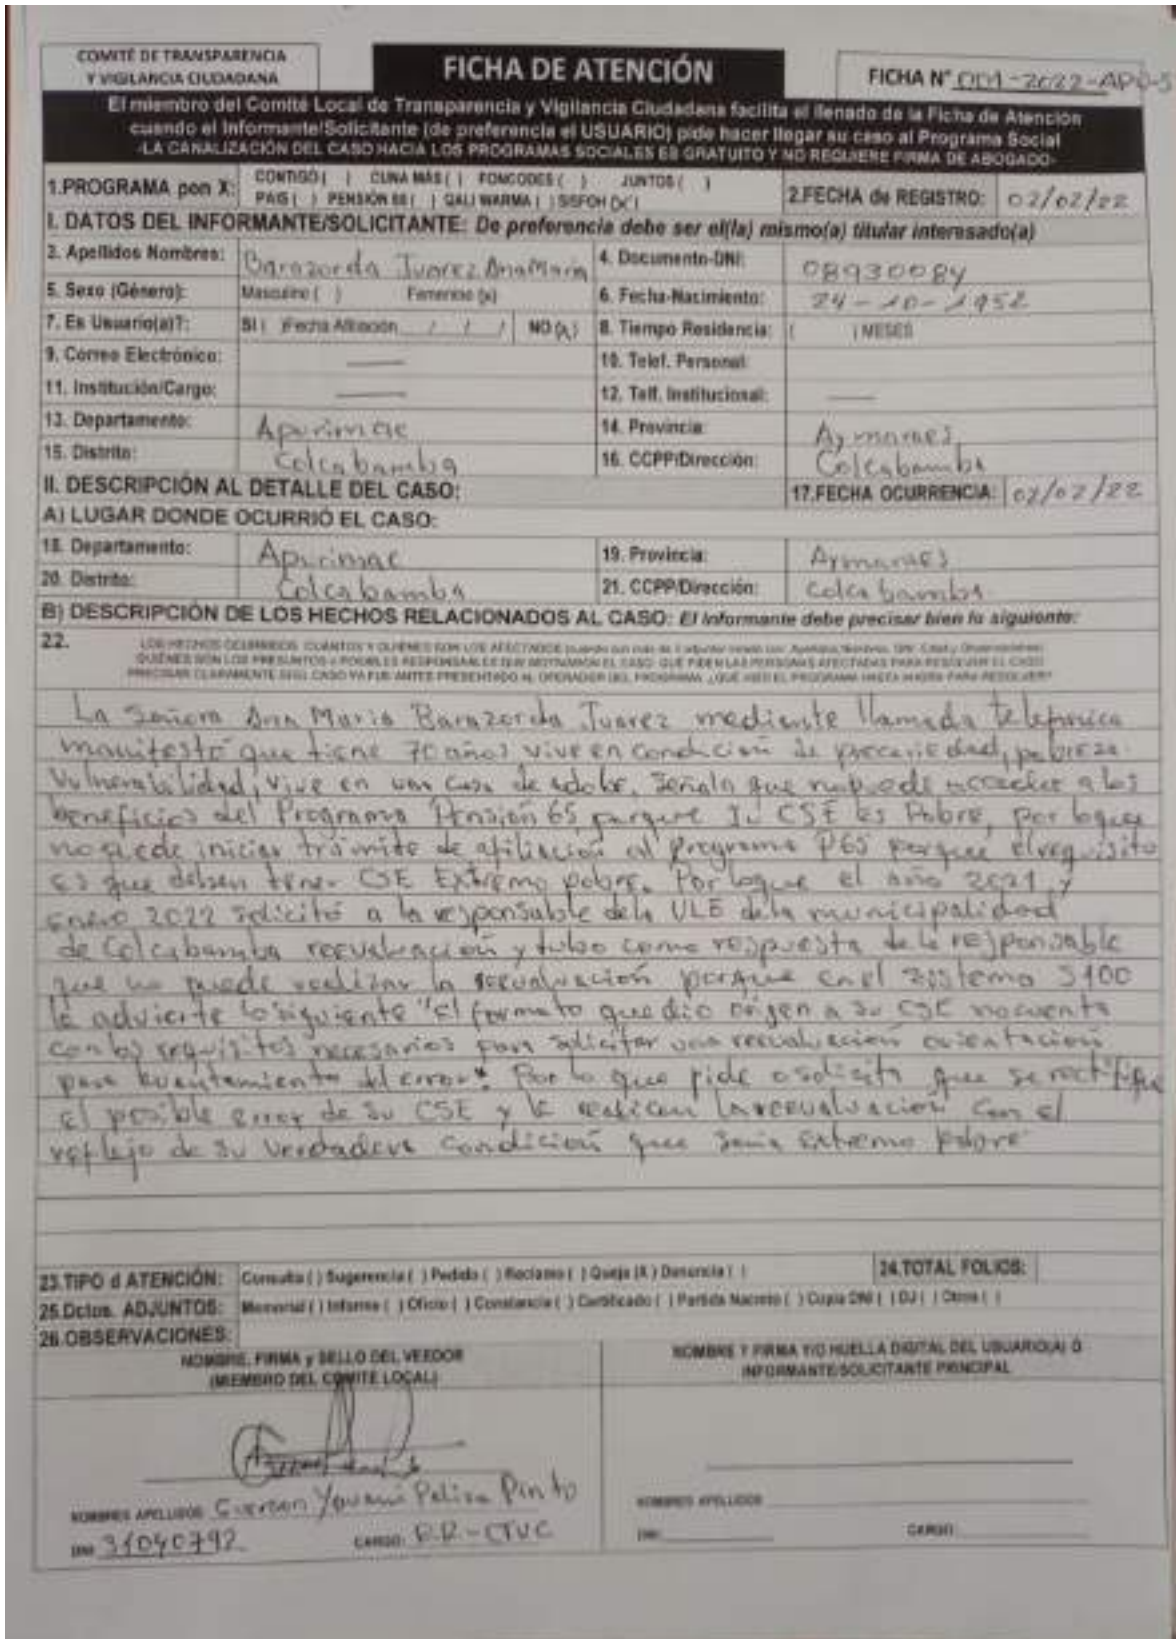 COMITÉ DE TRANSPARENCIA
Y VIGILANCIA CIUDADANA
FICHA DE ATENCIÓN
FICHA N° 001-2022-APU-S
El miembro del Comité Local de Transparencia y Vigilancia Ciudadana facilita el llenado de la Ficha de Atención
cuando el Informante/Solicitante (de preferencia el USUARIO) pide hacer llegar su caso al Programa Social
-LA CANALIZACIÓN DEL CASO HACIA LOS PROGRAMAS SOCIALES ES GRATUITO Y NO REQUIERE FIRMA DE ABOGADO-
1.PROGRAMA pon X: CONTIGO ( ) CUNA MÁS ( ) FONCODES ( ) JUNTOS ( )
PAIS ( ) PENSIÓN 65 ( ) QALI WARMA ( ) SISFOH (X)
2.FECHA de REGISTRO: 02/02/22
I. DATOS DEL INFORMANTE/SOLICITANTE: De preferencia debe ser el(la) mismo(a) titular interesado(a)
3. Apellidos Nombres: Barazorda Juarez Ana Maria 4. Documento-DNI: 08930084
5. Sexo (Género): Masculino ( ) Femenino (x) 6. Fecha-Nacimiento: 24-10-1952
7. Es Usuario(a)?: SI ( )Fecha Afiliación / / / NO (x) 8. Tiempo Residencia: ( ) MESES
9. Correo Electrónico: — 10. Telef. Personal:
11. Institución/Cargo: — 12. Telf. Institucional: —
13. Departamento: Apurimac 14. Provincia: Aymaraes
15. Distrito: Colcabamba 16. CCPP/Dirección: Colcabamba
II. DESCRIPCIÓN AL DETALLE DEL CASO: 17.FECHA OCURRENCIA: 02/02/22
A) LUGAR DONDE OCURRIÓ EL CASO:
18. Departamento: Apurimac 19. Provincia: Aymaraes
20. Distrito: Colcabamba 21. CCPP/Dirección: Colcabamba
B) DESCRIPCIÓN DE LOS HECHOS RELACIONADOS AL CASO: El Informante debe precisar bien lo siguiente:
22.
PRECISAR CLARAMENTE SI EL CASO YA FUE ANTES PRESENTADO AL OPERADOR DEL PROGRAMA ¿QUÉ HIZO EL PROGRAMA HASTA AHORA PARA RESOLVER?
La Señora Ana Maria Barazorda Juarez mediente llamada telefonica
manifestó que tiene 70 años vive en condición de precariedad, pobreza
Vulnerabilidad, vive en una casa de adobe, Señala que no puede acceder a los
beneficios del Programa Pensión 65 porque su CSE es Pobre, por loque
no puede iniciar trámite de afiliación al programa P65 porque el requisito
es que deben tener CSE Extremo pobre. Por loque el año 2021 y
enero 2022 solicitó a la responsable dela ULE dela municipalidad
de Colcabamba reevaluación y tubo como respuesta dela responsable
que no puede realizar la reevaluación porque en el sistema S100
le advierte lo siguiente "el formato que dio origen a su CSE no cuenta
con los requisitos necesarios para solicitar una reevaluación orientación
para levantamiento del error". Por lo que pide o solicita que se rectifique
el posible error de su CSE y le realicen la reevaluación con el
reflejo de su verdadera condición que seria extremo pobre
23.TIPO d ATENCIÓN: Consulta ( ) Sugerencia ( ) Pedido ( ) Reclamo ( ) Queja (X) Denuncia ( ) 24.TOTAL FOLIOS:
25.Dctos. ADJUNTOS: Memorial ( ) Informe ( ) Oficio ( ) Constancia ( ) Certificado ( ) Partida Nacmto ( ) Copia DNI ( ) DJ ( ) Otros ( )
26.OBSERVACIONES:
NOMBRE, FIRMA y SELLO DEL VEEDOR
(MIEMBRO DEL COMITÉ LOCAL)
NOMBRE Y FIRMA Y/O HUELLA DIGITAL DEL USUARIO(A) Ó
INFORMANTE/SOLICITANTE PRINCIPAL
NOMBRES APELLIDOS: Yovani Pinto
DNI: 31040792 CARGO: R.R-CTVC
NOMBRES APELLIDOS
DNI: CARGO: